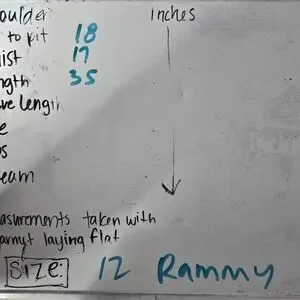 oulder inches
to pit 18
ist 17
ngth 35
ve length
e
s
eam
asurements taken with
armyt laying flat
SIZE: 12 Rammy